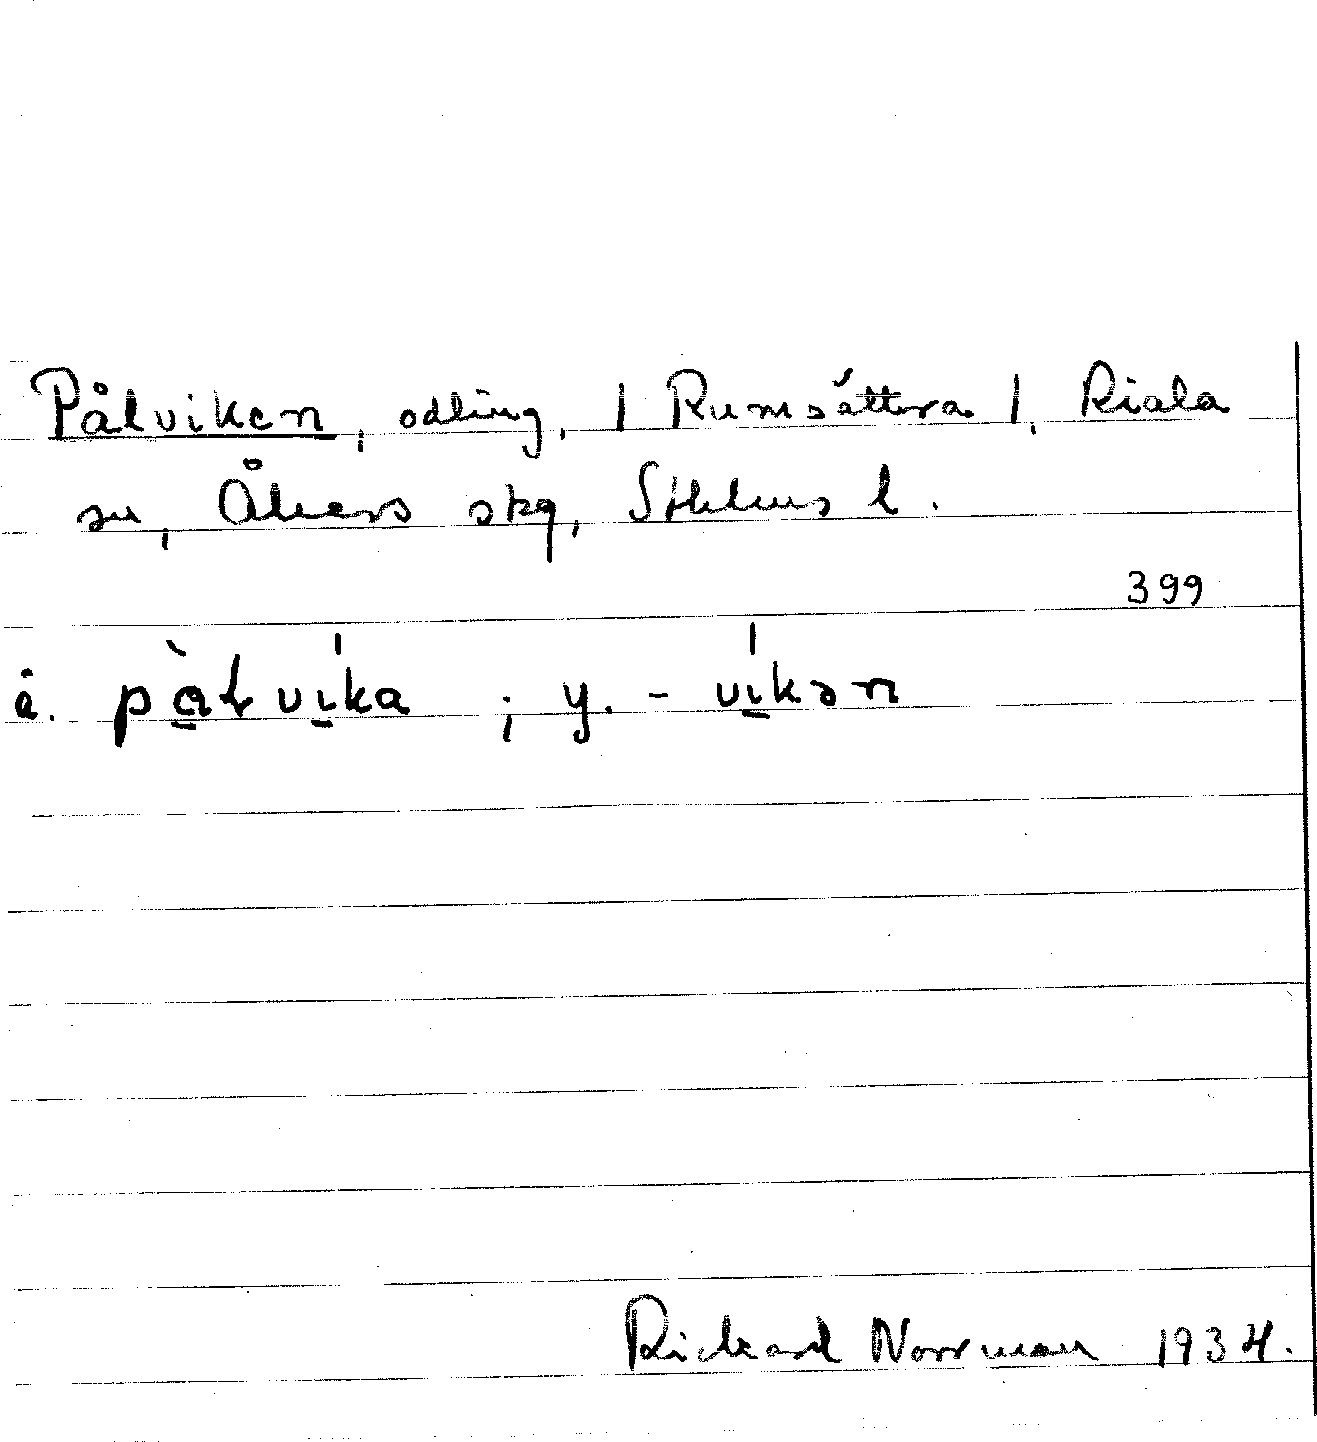 Pålviken, odling, | Rumsättra |, Riala
sn, Åkers skg, Sthlms l.
399
ä. pàḷvika ; y. - vikən
Rickard Norrman 1934.